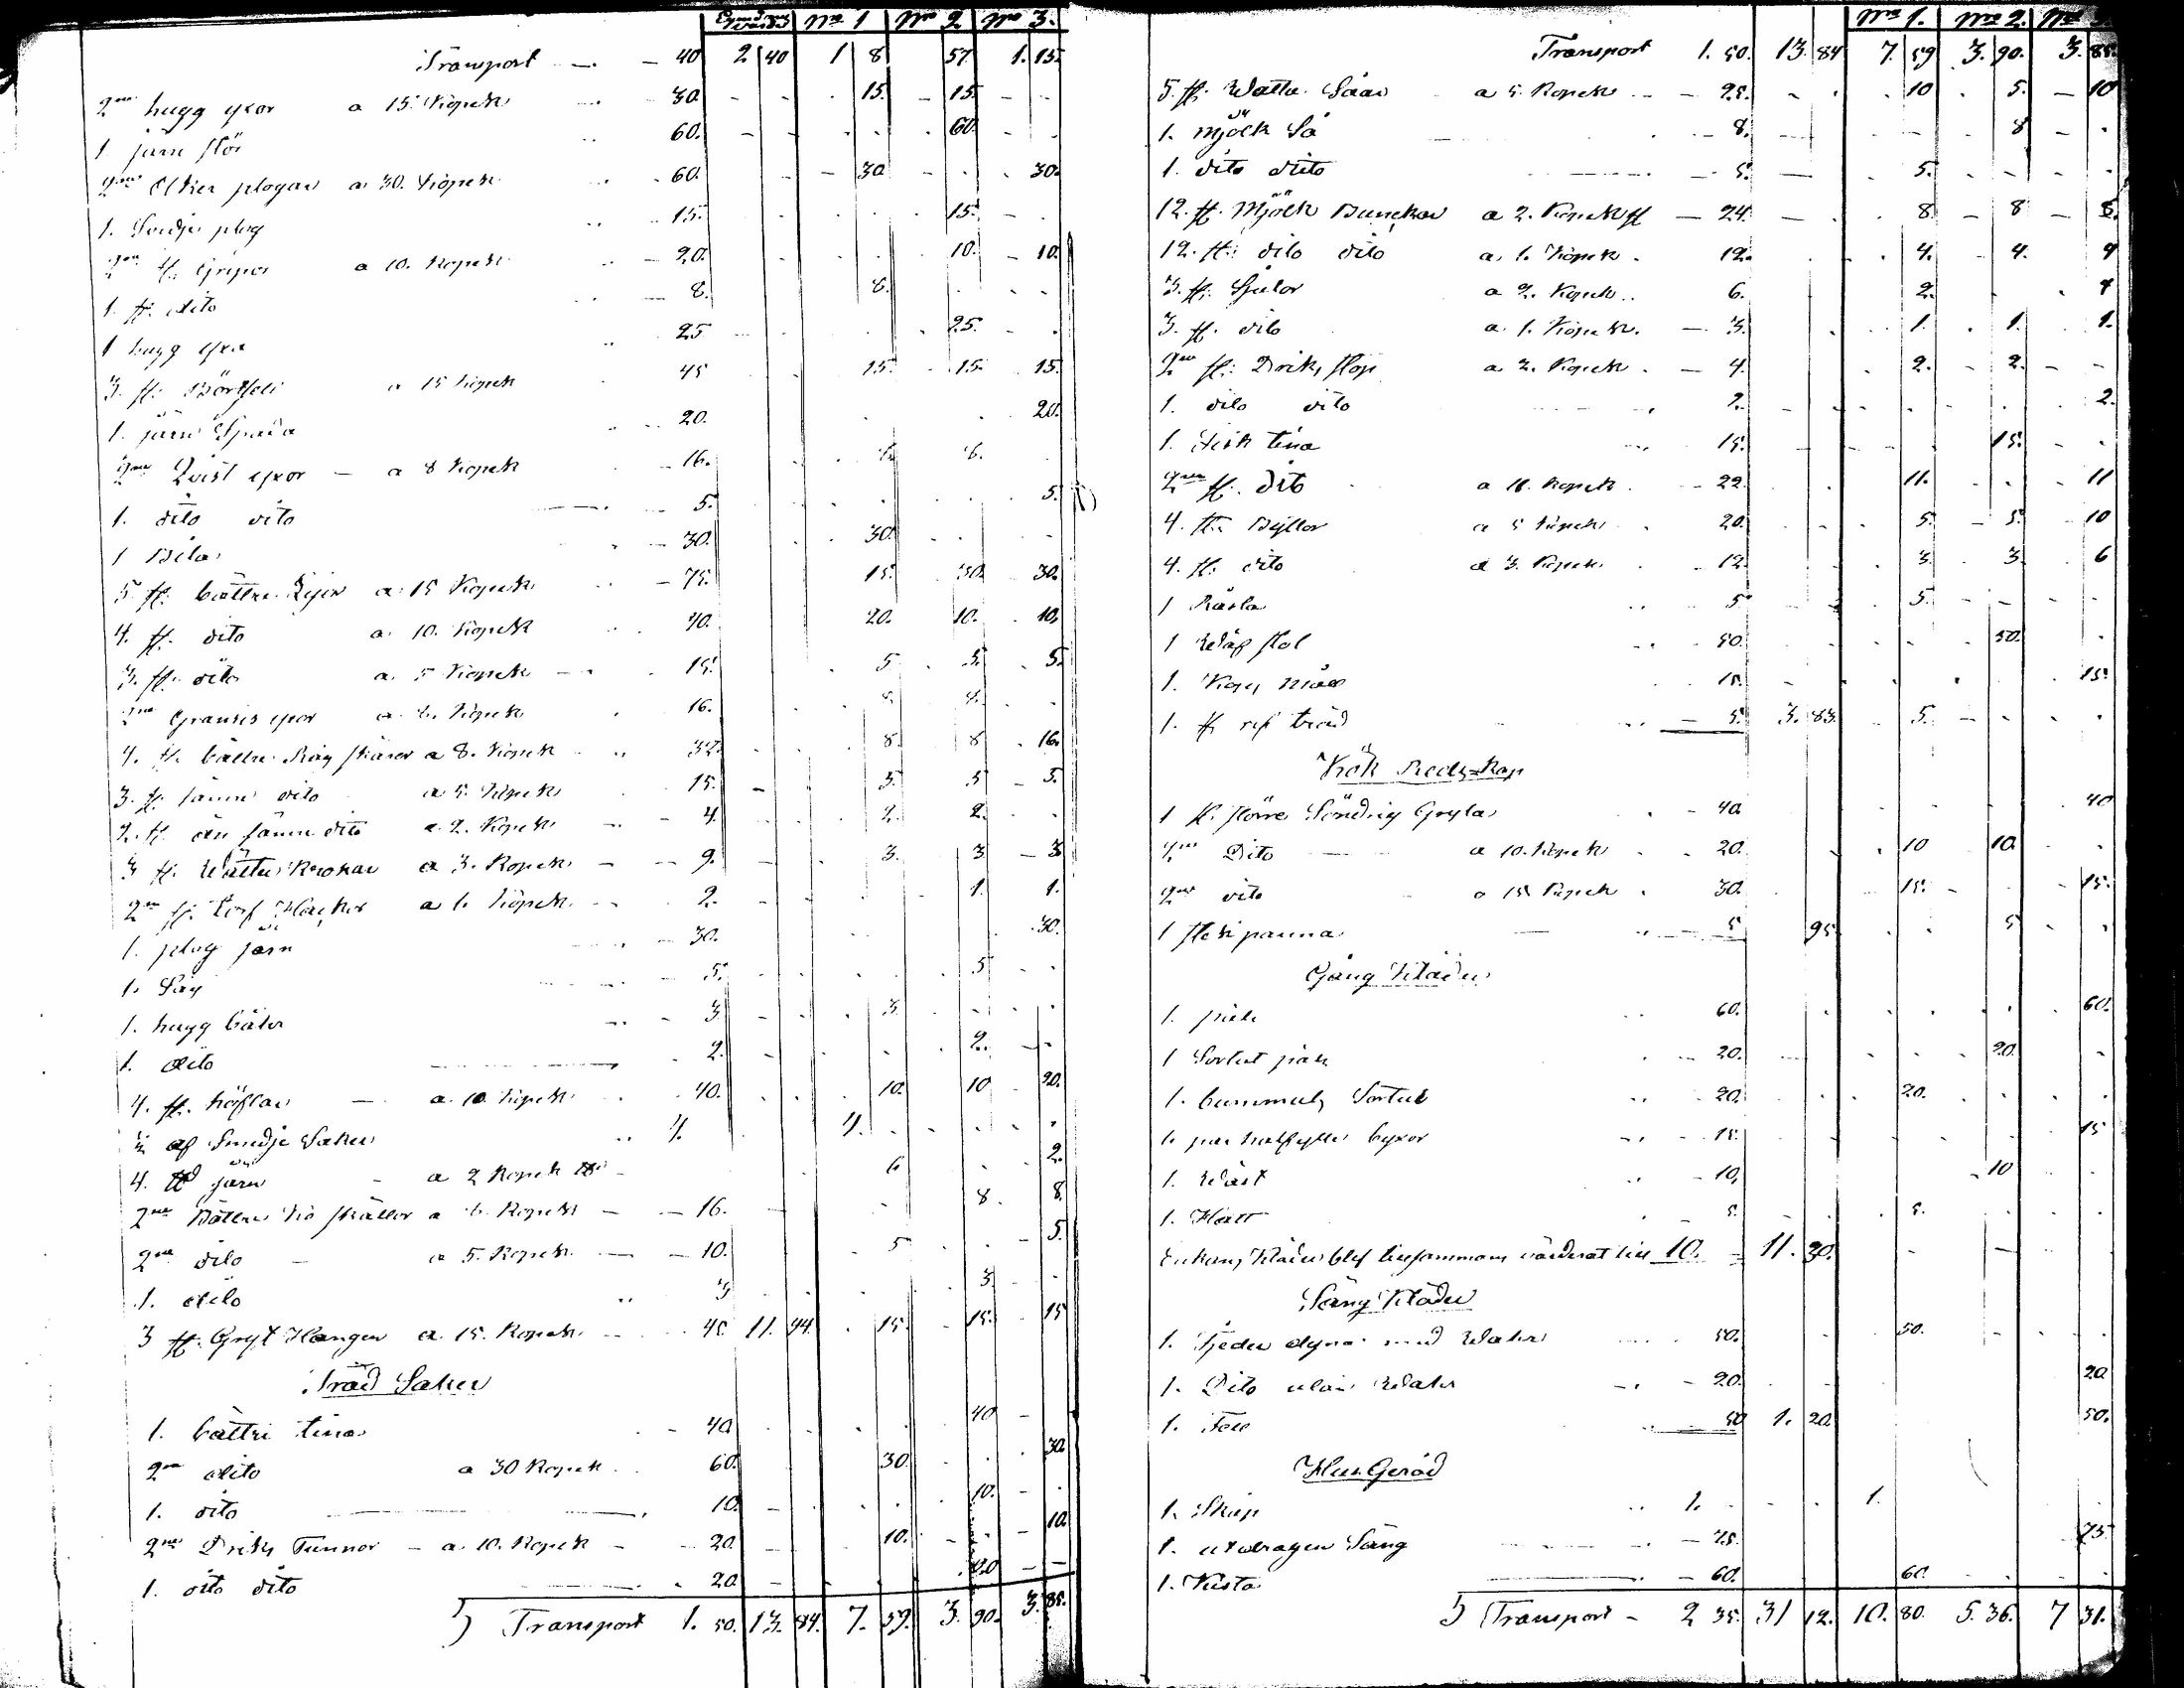 No 1 No 2 No 3.
Transport 40 2 40 1 8 57 1. 15.
2ne hugg yxor a 15. Kopek 30. 15. 15.
1 järn stör 60. 60.
2ne Olker plogar a 30. Kopek 60. 30. 30.
1. plog 15. 15.
2ne st. Gripor a 10. Kopek 20. 10. 10.
1. st. dito 8. 8.
1 hugg yxa 25 25.
3. st. a 15 Kopek 45 15. 15. 15.
1. järn Spada 20. 20.
2ne Qvist yxor a 8 Kopek 16. 8. 8.
1. dito dito 5. 5.
1 Bila 30. 30.
5 st. bättre Lijor a 15 Kopek 75. 15. 30. 30.
4. st. dito a 10. Kopek 40. 20. 10. 10.
3. st. dito a 5 Kopek 15. 5 5. 5.
2ne yxor a 8. Kopek 16. 8. 8.
4. st. bättre Skäror a 8. Kopek 32. 8. 8 16.
3. st. sämre dito a 5. Kopek 15. 5. 5 5.
2. st. än sämre dito a 2. Kopek 4. 2. 2.
3 st. Krokar a 3. Kopek 9. 3. 3 3
2ne st. torf Hackor a 1. Kopek 2. 1. 1.
1. plog järn 30. 30.
1. Såg 5. 5
1. hugg 3 3.
1. dito 2. 2.
4. st. höflar a 10 Kopek 40. 10. 10 20.
½ af Smedje Saker 4. 4.
4. ℔ järn a 2 Kopek 6 2.
2ne Bättre Ko skällor a 8. Kopek 16. 8. 8.
2ne dito a 5. Kopek 10. 5 5.
1. dito 3 3.
3 st. Gryt Hangen a 15. Kopek 45 11. 44. 15. 15. 15
Träd Saker
1. bättre tina 40 40
2ne dito a 30 Kopek 60. 30. 30.
1. dito 10. 10.
2ne Dricks Tunnor a 10. Kopek 20. 10. 10.
1. dito dito 20 20
Transport 1. 50. 13. 84. 7. 59. 3. 90. 3. 85.
No 1. No 2. No
Transport 1. 50. 13. 84 7. 59 3. 90. 3. 85.
5. st. Watte Såar a 5. Kopek 25. 10 5. 10
1. Mjölk Så 8. 8
1. dito dito 5. 5.
12. st. Mjölk Bunckar a 2. Kopek st 24. 8. 8 8.
12. st. dito dito a 1. Kopek 12. 4. 4. 4
3. st. a 2. Kopek 6. 2. 4
3. st. dito a 1. Kopek 3. 1. 1. 1.
2ne st. Dricks stop a 2. Kopek 4. 2. 2.
1. dito dito 2. 2.
1. Fisk tina 15. 15.
2ne st. dito a 11. Kopek 22. 11. 11
4. st. Byttor a 5 Kopek 20. 5. 5. 10
4. st. dito a 3. Kopek 12. 3. 3. 6
1 5 5.
1 Wäf stol 50. 50.
1. 15. 15.
1. st träd 5. 3. 83. 5.
Kök Redskap
1 st. större Söndrig Gryta 40. 40
2ne Dito a 10. Kopek 20. 10 10.
2ne dito a 15 Kopek 30. 15. 15.
1 stekpanna 5 95 5
Gång Kläder
1. päls 60. 60.
1 Sortut 20. 20.
1. bummuls Sortut 20. 20.
1. par byxor 15. 15
1. Wäst 10. 10
1. Hatt 5. 5.
Enkans Kläder blef tilsammans värderat till 10. 11. 30.
Säng Kläder
1. Fjeder dyna med Walar 50. 50.
1. Dito utan Walar 20. 20
1. Fäll 50 1. 20. 50.
Hus Geråd
1. Skåp 1. 1.
1. utdragen Säng 75. 75.
1. Kista 60. 60.
Transport 2 35. 31 12. 10. 80. 5. 36. 7 31.